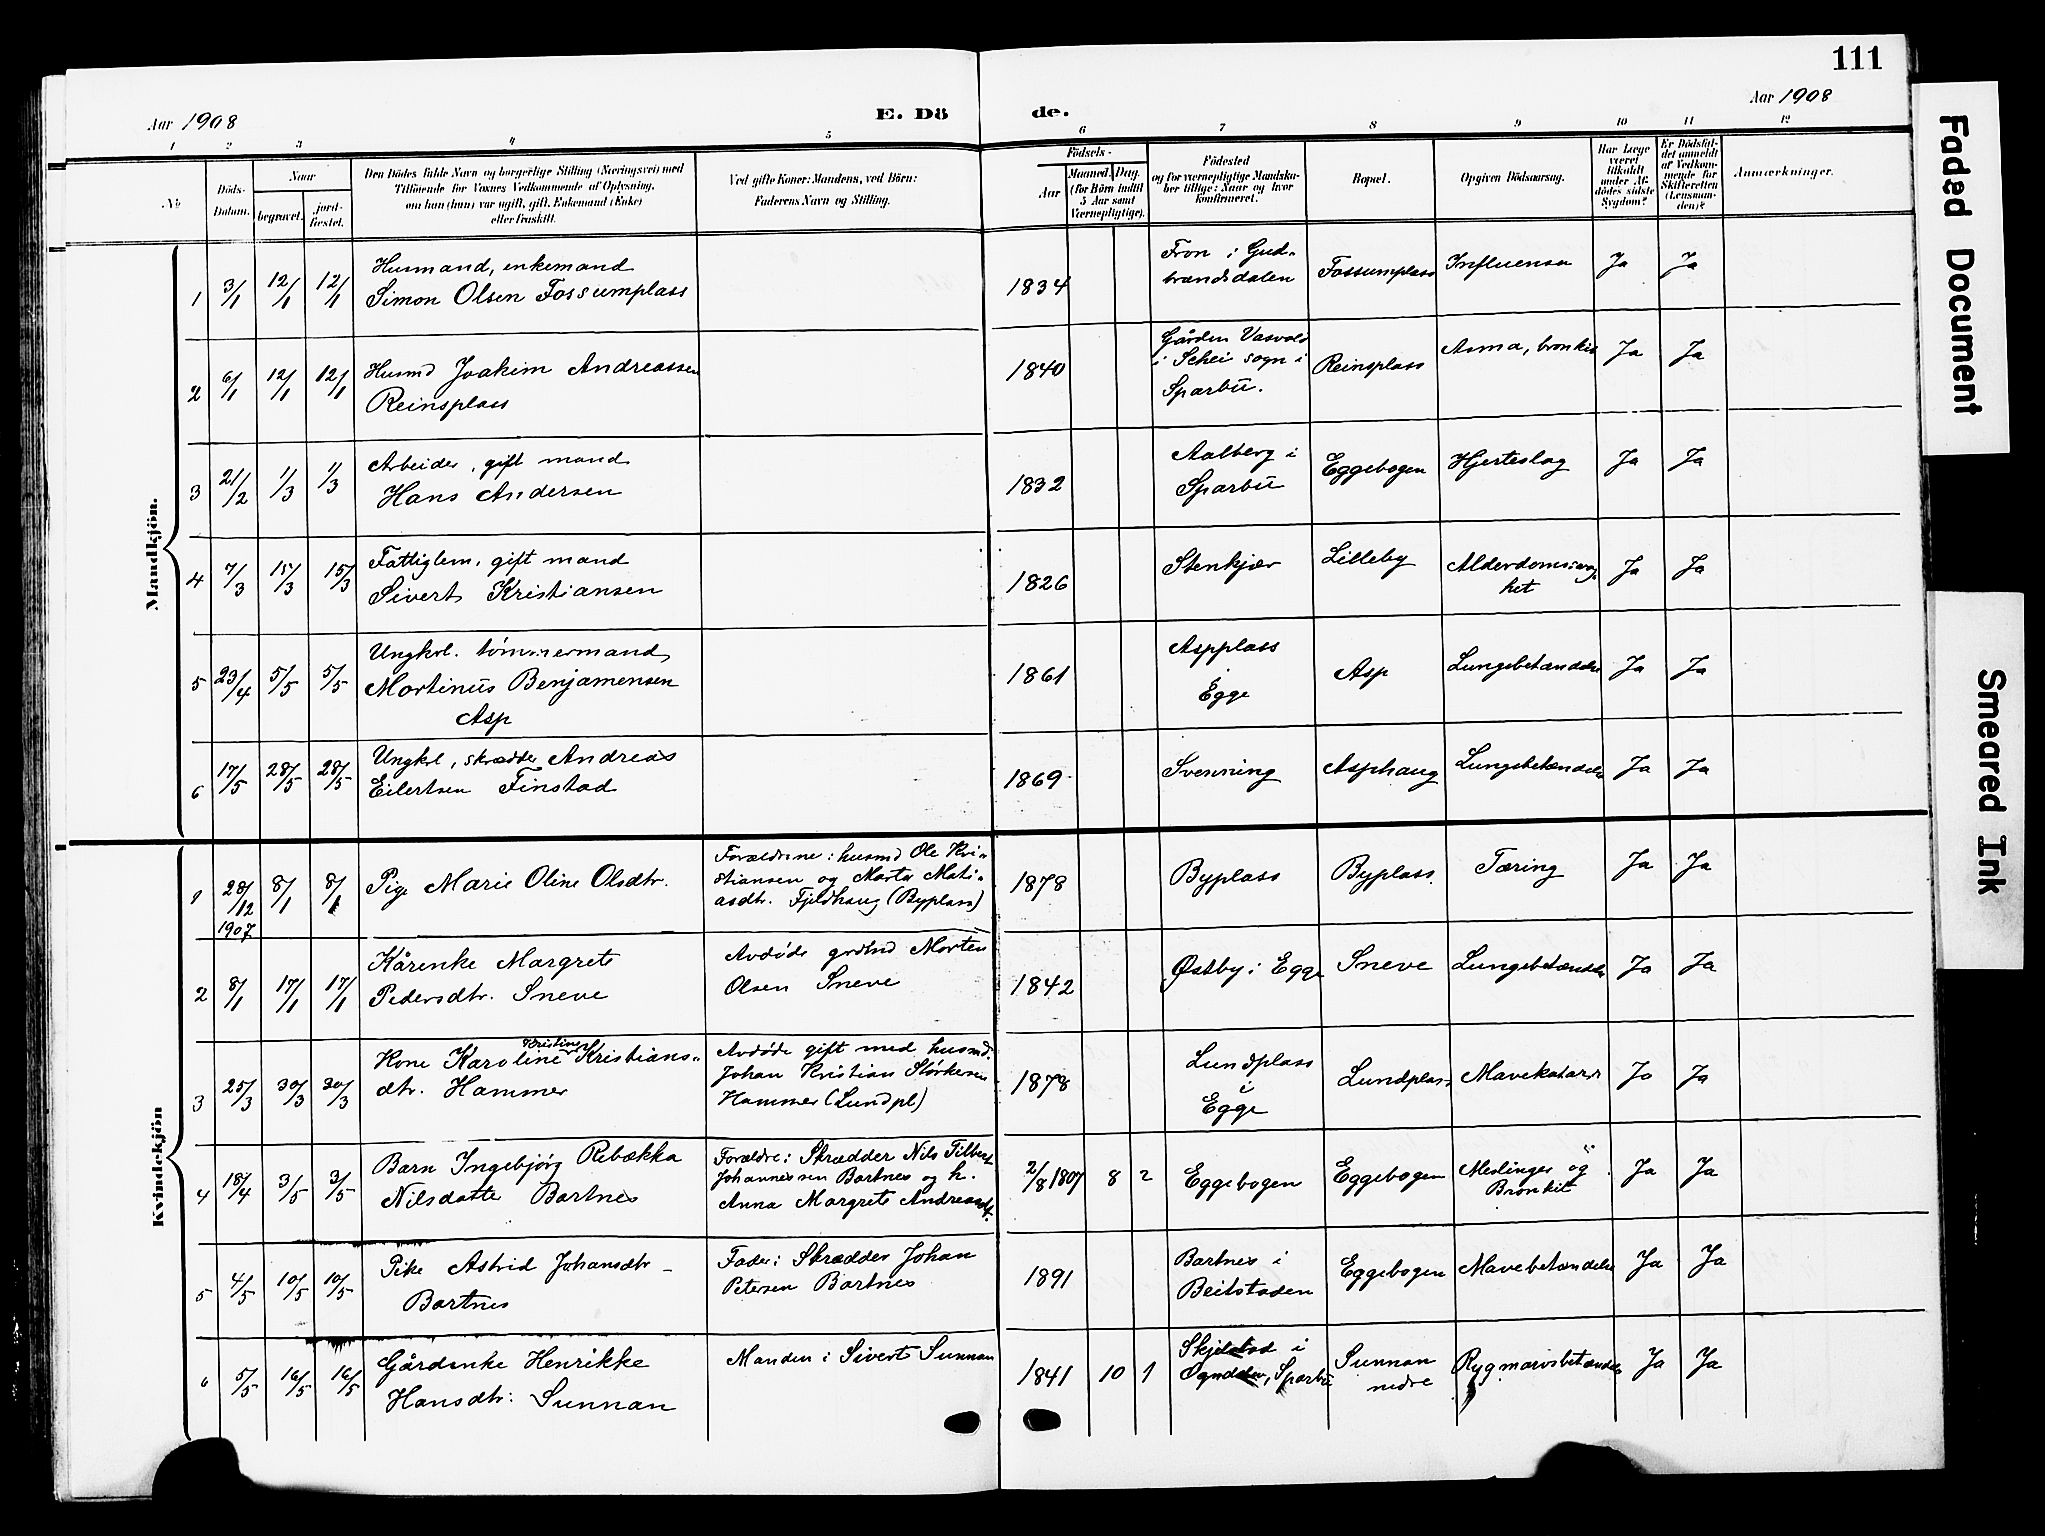 111
Aar 1908
E. Dö
de.
Aar 1908
1 2 3 4 5 6 7 8 9 10 11 12
No
Döds-
Datum.
Naar
begravet.
jord-
fæstet.
Den Dödes fulde Navn og borgerlige Stilling (Næringsvei) med
Tilföiende for Voxnes Vedkommende af Oplysning,
om han (hun) var ugift, gift, Enkemand (Enke)
eller fraskilt.
Ved gifte Koner: Mandens, ved Börn:
Faderens Navn og Stilling.
Födsels-
Aar
Maaned. Dag.
(for Börn indtil
5 Aar samt
Værnepligtige).
Födested
og for værnepligtige Mandska-
ber tillige: Naar og hvor
konfirmeret.
Bopæl.
Opgiven Dödsaarsag.
Har Læge
været
tilkaldt
under Af-
dödes sidste
Sygdom?
Er Dödsfal-
det anmeldt
af Vedkom-
mende for
Skifteretten
(Lensman-
den)?
Anmærkninger.
Mandkjön.
1 3/1 12/1 12/1
Husmand, enkemand
Simon Olsen Fossumplass
1834
Fron i Gud-
brandsdalen
Fossumplass Influensa Ja Ja
2 6/1 12/1 12/1
Husmd Joakim Andreassen
Reinsplass
1840
Gården Vasvold
i Schei sogn i
Sparbu.
Reinsplass Asma, bronkit Ja Ja
3 21/2 1/3 1/3
Arbeider, gift mand
Hans Andersen
1832
Aalberg i
Sparbu
Eggebogen Hjerteslag Ja Ja
4 7/3 15/3 15/3
Fattiglem, gift mand
Sivert Kristiansen
1826
Stenkjær Lilleby
Alderdomssvag-
het
Ja Ja
5 23/4 5/5 5/5
Ungkrl. tømmermand
Martinus Benjamensen
Asp
1861
Aspplass
i
Egge
Asp Lungebetændelse Ja Ja
6 17/5 28/5 28/5
Ungkl, skrædder Andreas
Eilertsen Finstad
1869
Svenning Asphaug Lungebetændelse Ja Ja
Kvindekjön
1 28/12 1907 8/1 8/1
Pige Marie Oline Olsdtr.
Forældrene: husmd Ole Kri-
stiansen og Marta Mati-
asdtr. Fjeldhaug (Byplass)
1878
Byplass Byplass. Tæring Ja Ja
2 8/1 17/1 17/1
Kårenke Margrete
Pedersdtr. Sneve
Avdøde grdmd Morten
Olsen Sneve
1842
Østby i Egge Sneve Lungebetændelse Ja Ja
3 25/3 30/3 30/3
Kone Karoline Kristine Kristians-
dtr. Hammer
Avdøde gift med husmd.
Johan Kristian Størkersen
Hammer (Lundpl)
1878
Lundplass
i
Egge
Lundplass Mavekatarr Ja Ja
4 18/4 3/5 3/5
Barn Ingebjørg Rebækka
Nilsdatte Bartnes
Forældre: Skrædder Nils Tilbert
Johannessen Bartnes og h.
Anna Margrete Andreasdt.
2/8 1807 8 2
Eggebogen Eggebogen
Meslinger og
Bronkit
Ja Ja
5 4/5 10/5 10/5
Pike Astrid Johansdtr
Bartnes
Fader: Skrædder Johan
Petersen Bartnes
1891
Bartnes i
Beitstaden
Eggebogen Mavebetændelse Ja Ja
6 5/5 16/5 16/5
Gårdenke Henrikke
Hansdtr: Sunnan
Manden: Sivert Sunnan
1841 10 1
Skjelstad i
Ogndalen, Sparbu
Sunnan
nedre
Rygmarvsbetændelse Ja Ja
Faded Document
Smeared Ink